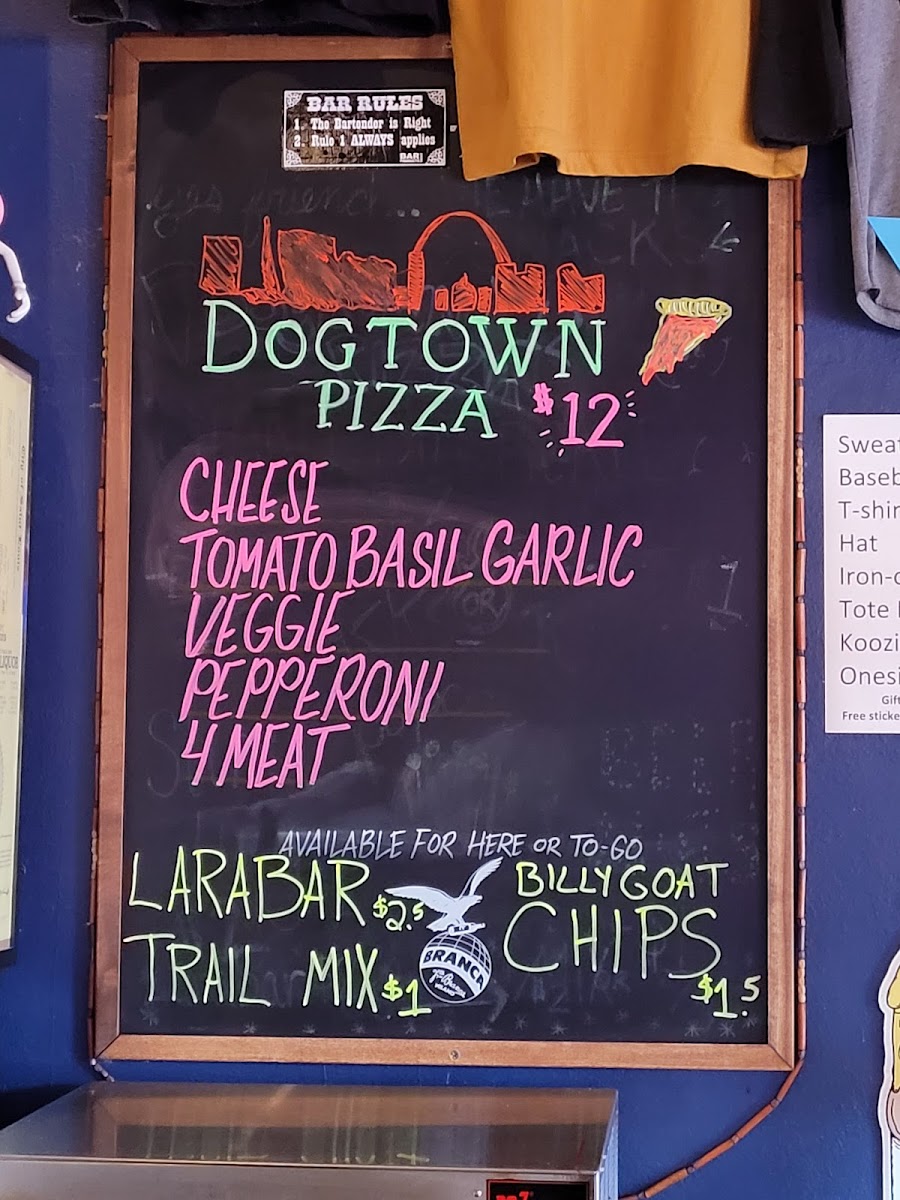 BAR RULES
1. The Bartender is Right
2. Rule 1 ALWAYS applies
BAR
DOGTOWN
PIZZA $12
CHEESE
TOMATO BASIL GARLIC
VEGGIE
PEPPERONI
4 MEAT
AVAILABLE FOR HERE OR TO-GO
LARABAR $2.5
TRAIL MIX $1
BRANCA
MILANO
BILLY GOAT
CHIPS
$1.5
Sweat
Baseb
T-shir
Hat
Iron-o
Tote
Koozi
Onesi
Gift
Free sticke